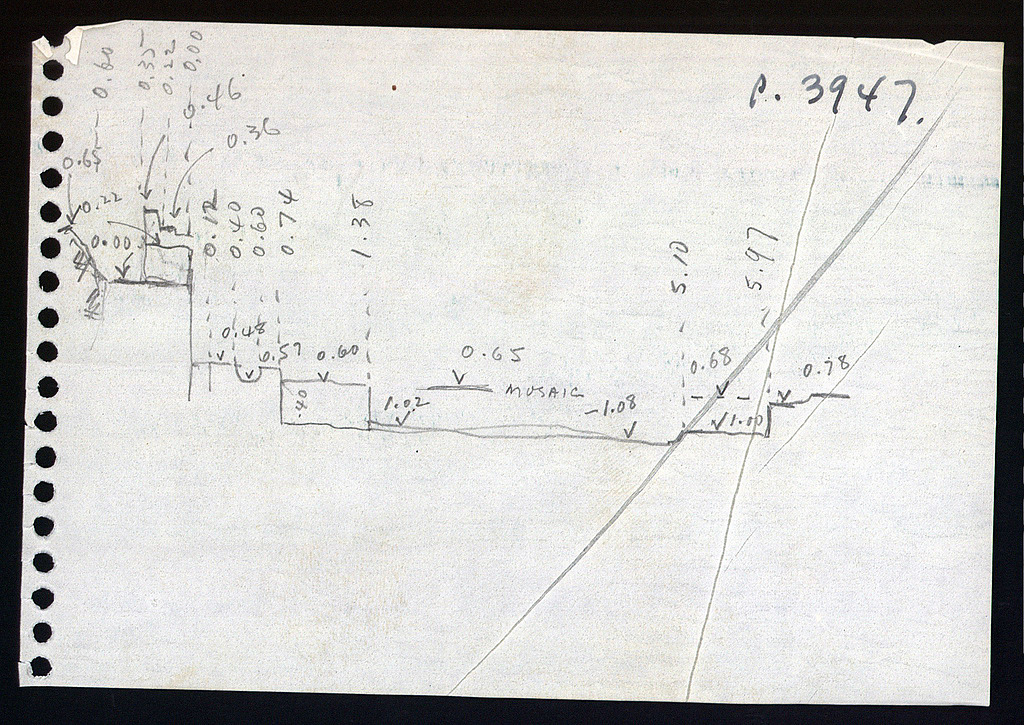 P. 3947.
0.60
0.35
0.22
0.00
0.46
0.36
0.65
0.22
0.00
0.12
0.40
0.60
0.74
1.38
5.10
5.97
0.48
0.57
0.60
0.65
0.68
0.78
MOSAIC
.40
1.02
-1.08
1.00